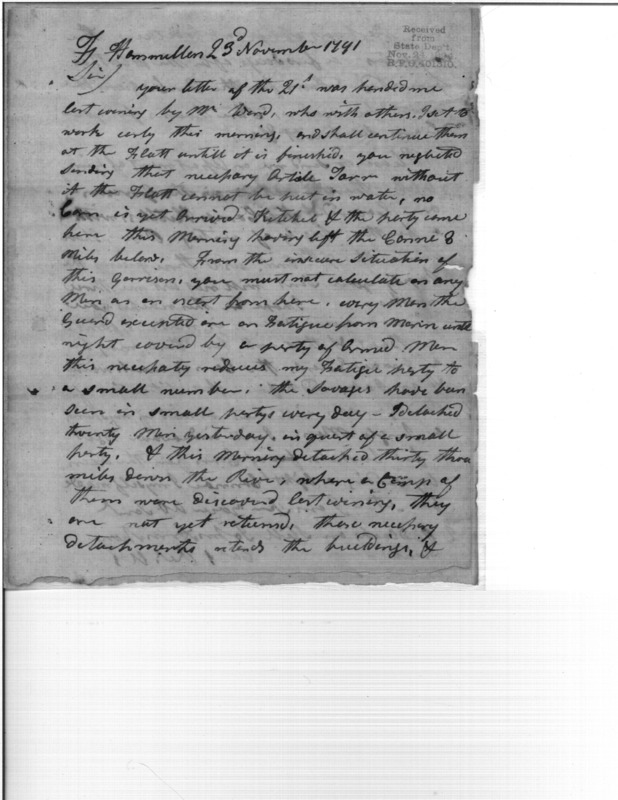 Ft Hammilton 23d November 1791
Received
from
State Dep't.
Nov. 23
Sir)
your letter of the 21st was handed me
last evining by Mr Ward, who with others. I set to
work early this morning, and shall continue them
at the Flatt untill it is finished. you neglected
sending that necessary Article Tarr without
it the Flatt cannot be put in water, no
Corn is yet Arrived Kitchel & the party came
here this Morning having left the Connue 8
Miles below. From the insecure Situation of
this Garrison, you must not calculate on any
Men as an escort from here. every Man the
Guard excepted are on Fatigue from Morin untill
night covered by a party of Armed Men
this necessaty reduces my Fatigue party to
a small number. the Savages have been
seen in small partys every day - I detached
twenty Men yesterday. in quest of a small
party. & this Morning detached thirty three
miles down the River, where a Camp of
them were discovered last evining, they
are not yet returned, these necessary
detachments retards the buildings, &